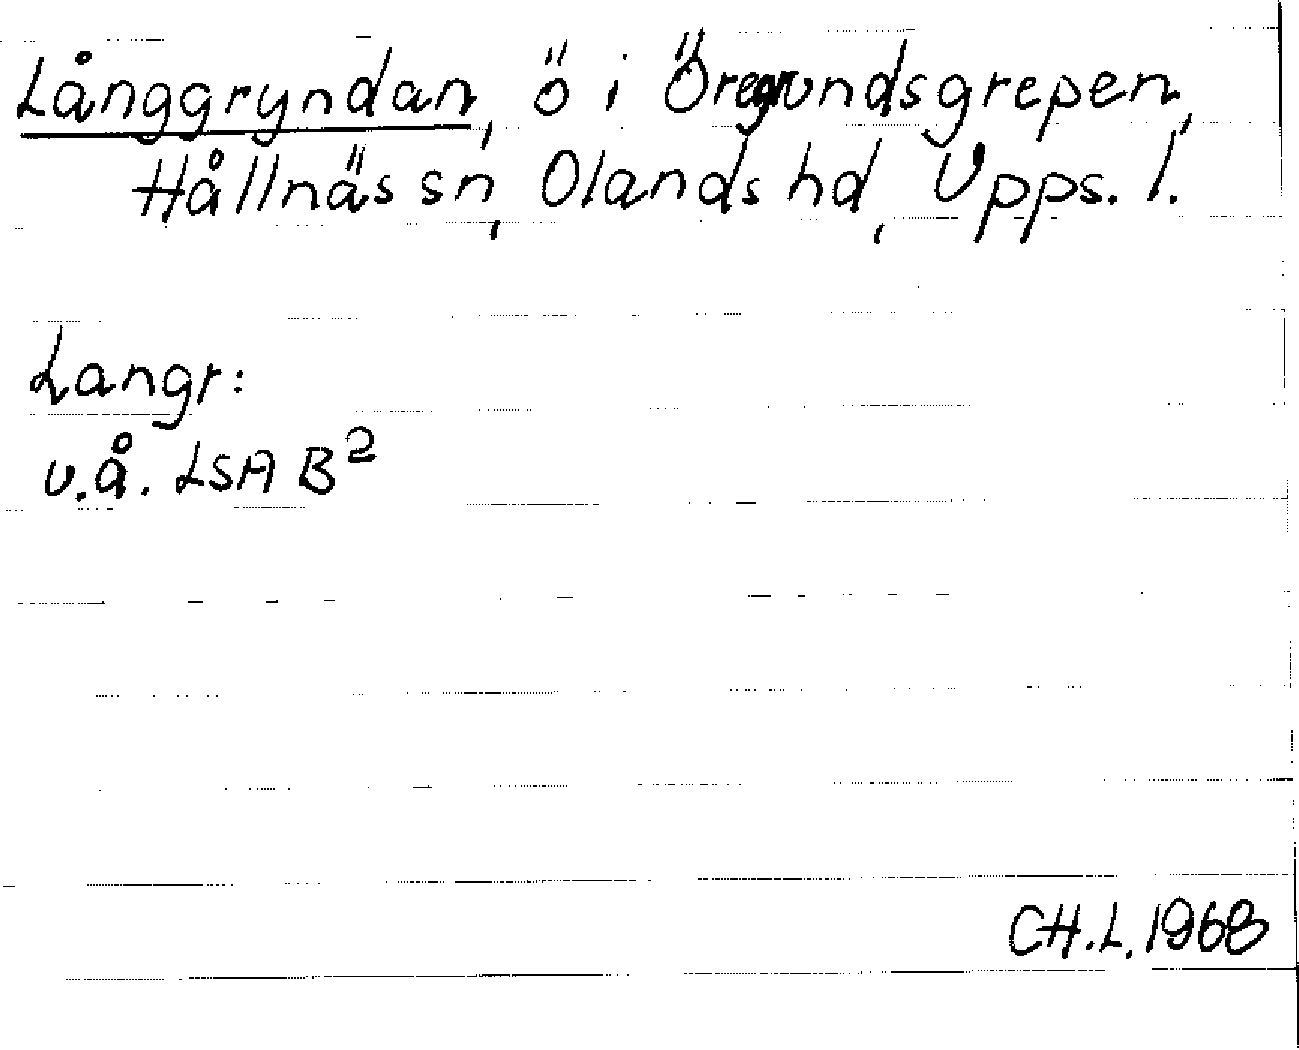 Långgryndan, ö i Öregrundsgrepen,
Hållnäs sn, Olands hd, Upps. l.
Langr:
u.å. LSA B²
CH.L. 1968